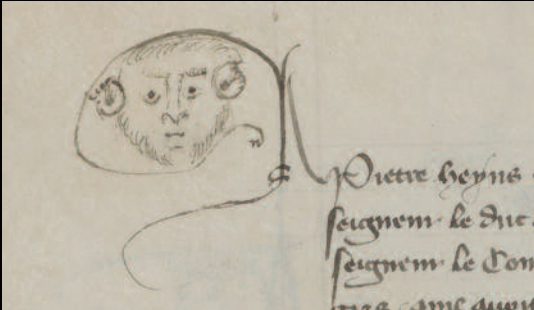 A Pietre heyns
seigneur le duc
seigneur le Com